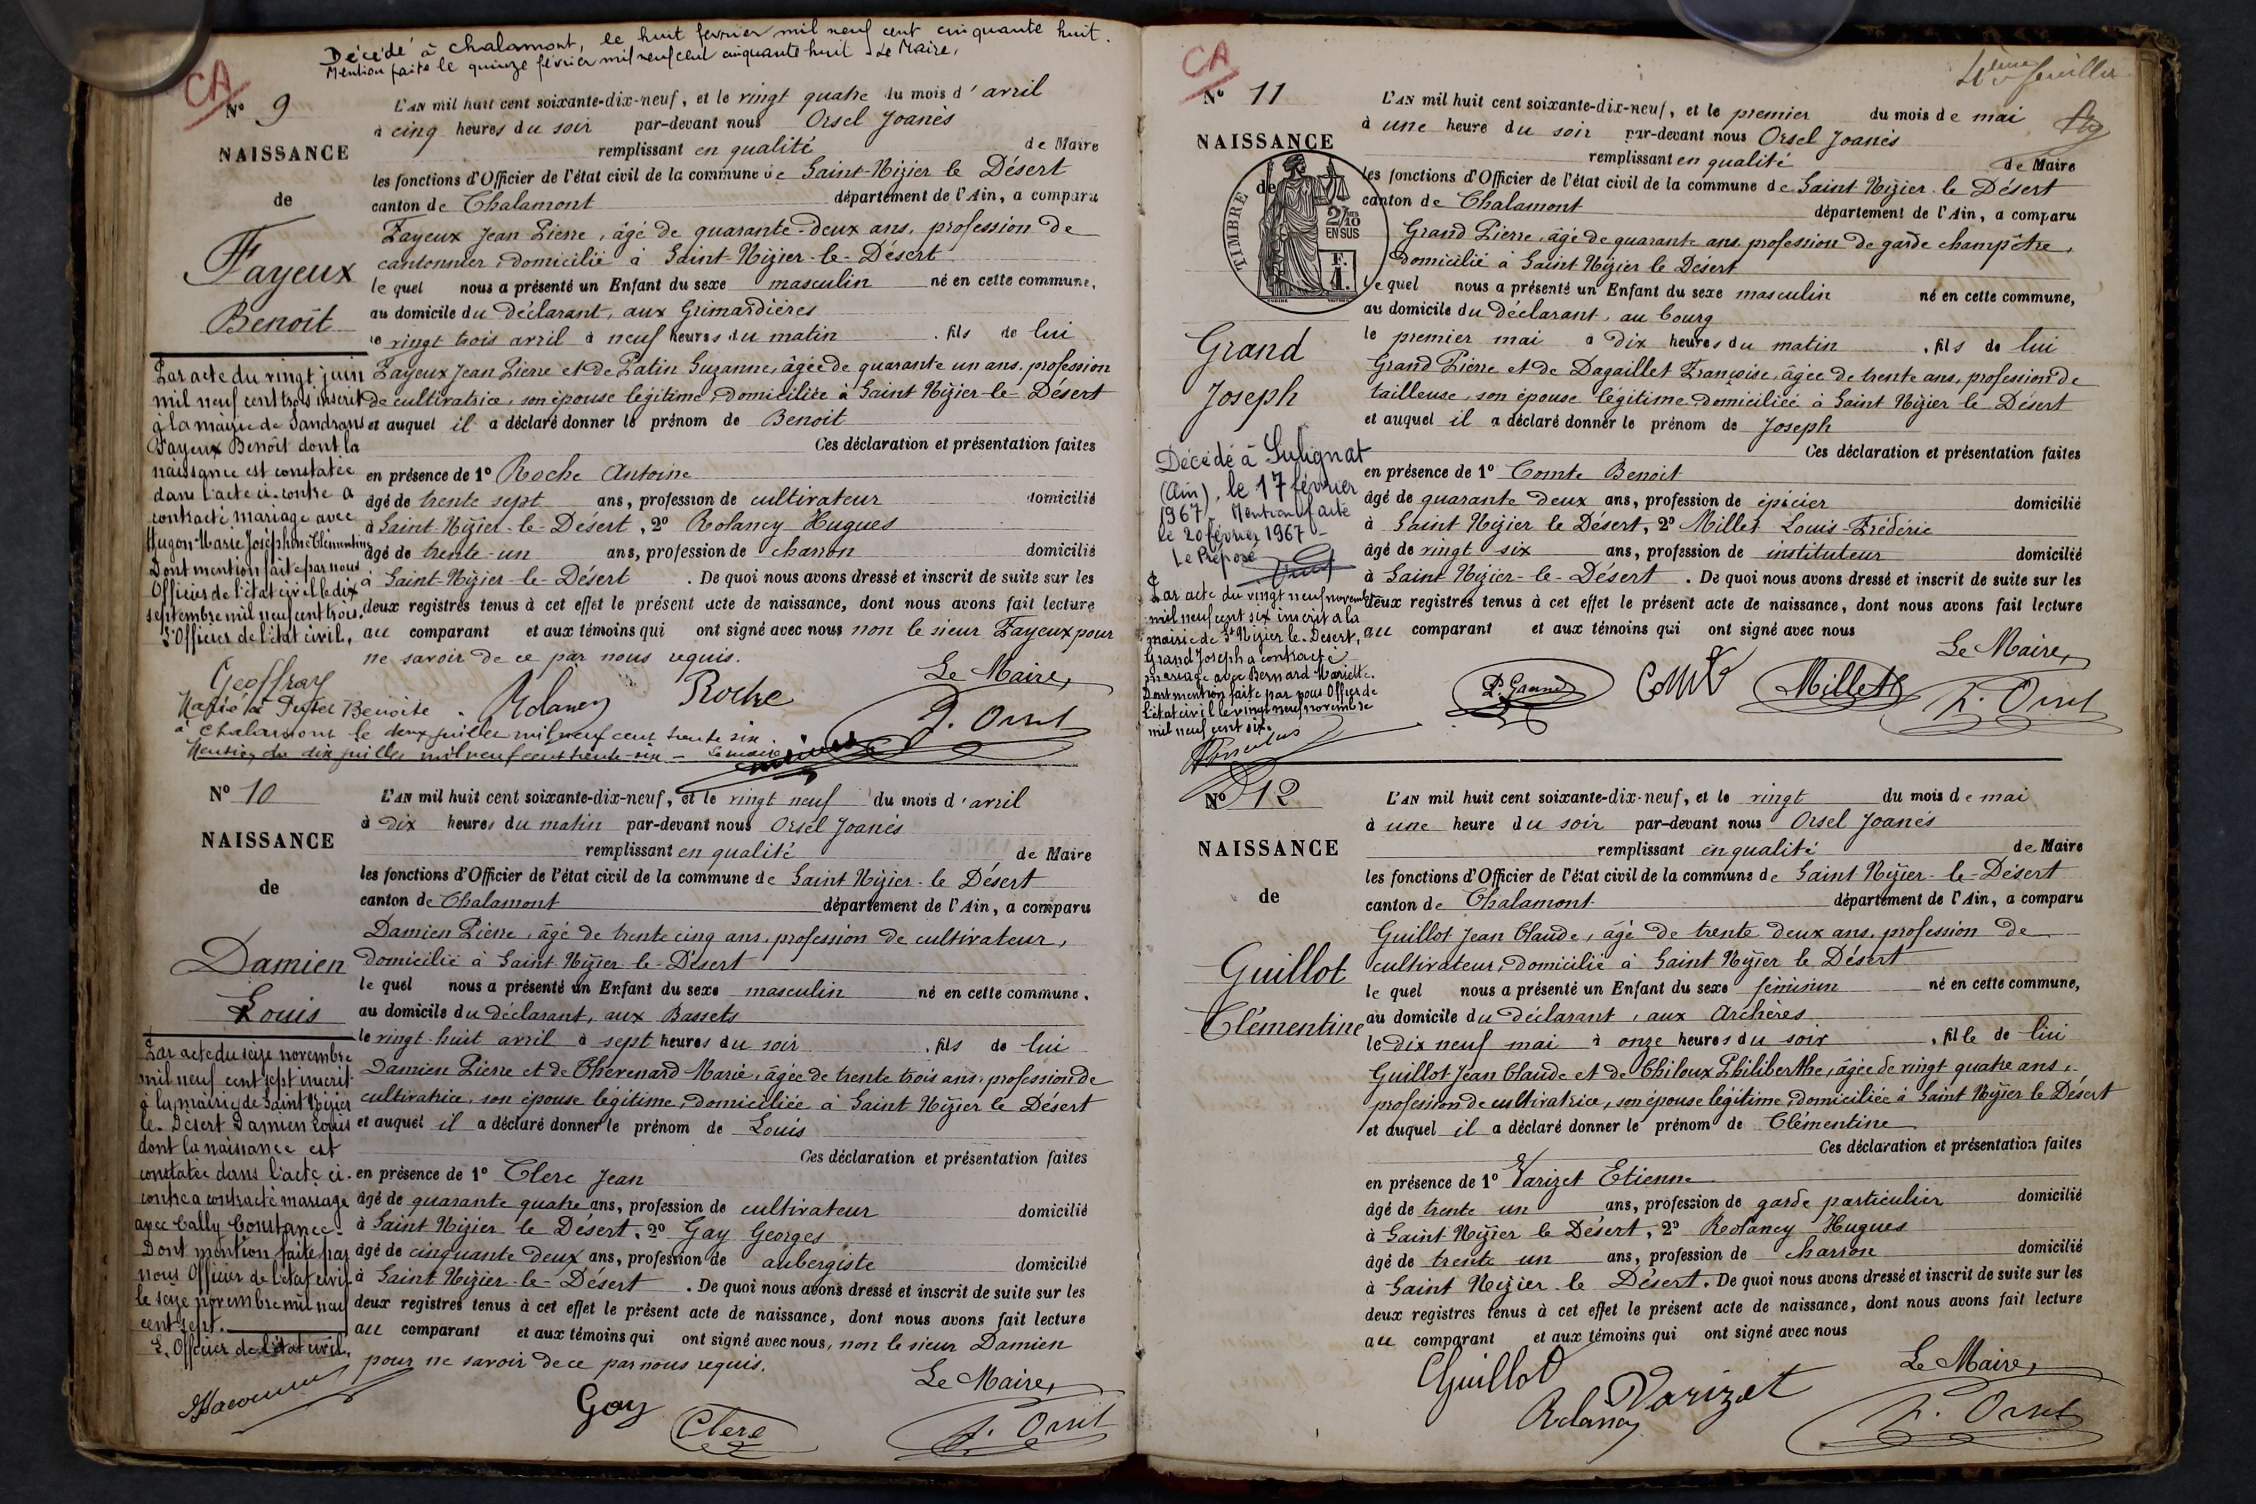 Décédé à Chalamont, le huit février mil neuf cent cinquante huit.
Mention faite le quinze février mil neuf cent cinquante huit Le Maire,
CA
N° 9
NAISSANCE
de
Fayeux
Benoît
L'AN mil huit cent soixante-dix-neuf, et le vingt quatre du mois d'avril
à cinq heures du soir par-devant nous Orsel Joanès
remplissant en qualité de Maire
les fonctions d'Officier de l'état civil de la commune de Saint-Nizier le Désert
canton de Chalamont département de l'Ain, a comparu
Fayeux Jean Pierre, âgé de quarante-deux ans, profession de
cantonnier, domicilié à Saint-Nizier-le-Désert
le quel nous a présenté un Enfant du sexe masculin né en cette commune,
au domicile du déclarant, aux Grimardières
le vingt trois avril à neuf heures du matin, fils de lui
Fayeux Jean Pierre et de Patin Suzanne, âgée de quarante un ans, profession
de cultivatrice, son épouse légitime, domiciliée à Saint Nizier-le-Désert
et auquel il a déclaré donner le prénom de Benoit
Ces déclaration et présentation faites
en présence de 1° Roche Antoine
âgé de trente sept ans, profession de cultivateur domicilié
à Saint-Nizier-le-Désert, 2° Rolancy Hugues
âgé de trente-un ans, profession de charron domicilié
à Saint-Nizier-le-Désert. De quoi nous avons dressé et inscrit de suite sur les
deux registres tenus à cet effet le présent acte de naissance, dont nous avons fait lecture
au comparant et aux témoins qui ont signé avec nous non le sieur Fayeux pour
ne savoir de ce par nous requis.
Le Maire,
Rolancy Roche J. Orsel
Par acte du vingt juin
mil neuf cent trois inscrit
à la mairie de Sandrans
Fayeux Benoît dont la
naissance est constatée
dans l'acte ci-contre a
contracté mariage avec
Hugon Marie Joséphine Clémentine
Dont mention faite par nous
Officier de l'état civil le dix
septembre mil neuf cent trois.
L'Officier de l'état civil,
Geoffray
Marié à Benoite
à Chalamont le deux juillet mil neuf cent trente six.
Mention du dix juillet mil neuf cent trente-six - Le maire
N° 10
NAISSANCE
de
Damien
Louis
L'AN mil huit cent soixante-dix-neuf, et le vingt neuf du mois d'avril
à dix heures du matin par-devant nous Orsel Joanès
remplissant en qualité de Maire
les fonctions d'Officier de l'état civil de la commune de Saint Nizier-le Désert
canton de Chalamont département de l'Ain, a comparu
Damien Pierre, âgé de trente cinq ans, profession de cultivateur,
domicilié à Saint-Nizier-le-Désert
le quel nous a présenté un Enfant du sexe masculin né en cette commune,
au domicile du déclarant, aux Bassets
le vingt-huit avril à sept heures du soir, fils de lui
Damien Pierre et de Thévenard Marie, âgée de trente trois ans, profession de
cultivatrice, son épouse légitime, domiciliée à Saint Nizier le Désert
et auquel il a déclaré donner le prénom de Louis
Ces déclaration et présentation faites
en présence de 1° Clerc Jean
âgé de quarante quatre ans, profession de cultivateur domicilié
à Saint Nizier le Désert, 2° Gay Georges
âgé de cinquante deux ans, profession de aubergiste domicilié
à Saint Nizier-le-Désert. De quoi nous avons dressé et inscrit de suite sur les
deux registres tenus à cet effet le présent acte de naissance, dont nous avons fait lecture
au comparant et aux témoins qui ont signé avec nous, non le sieur Damien
pour ne savoir de ce par nous requis.
Le Maire,
Gay Clerc J. Orsel
Par acte du seize novembre
mil neuf cent sept inscrit
à la mairie de Saint Nizier
le-Désert Damien Louis
dont la naissance est
constatée dans l'acte ci-
contre a contracté mariage
avec Cally Constance
Dont mention faite par
nous Officier de l'état civil
le seize novembre mil neuf
cent sept.
L'Officier de l'état civil,
CA
4ème feuillet
N° 11
NAISSANCE
de
TIMBRE
2/10
EN SUS
F.
1.
Grand
Joseph
L'AN mil huit cent soixante-dix-neuf, et le premier du mois de mai
à une heure du soir par-devant nous Orsel Joanès
remplissant en qualité de Maire
les fonctions d'Officier de l'état civil de la commune de Saint Nizier-le Désert
canton de Chalamont département de l'Ain, a comparu
Grand Pierre, âgé de quarante ans, profession de garde champêtre,
domicilié à Saint Nizier le Désert
le quel nous a présenté un Enfant du sexe masculin né en cette commune,
au domicile du déclarant, au bourg
le premier mai à dix heures du matin, fils de lui
Grand Pierre et de Dagaillet Françoise, âgée de trente ans, profession de
tailleuse, son épouse légitime, domiciliée à Saint Nizier le Désert
et auquel il a déclaré donner le prénom de Joseph
Ces déclaration et présentation faites
en présence de 1° Comte Benoit
âgé de quarante deux ans, profession de épicier domicilié
à Saint Nizier le Désert, 2° Millet Louis-Frédéric
âgé de vingt six ans, profession de instituteur domicilié
à Saint-Nizier-le-Désert. De quoi nous avons dressé et inscrit de suite sur les
deux registres tenus à cet effet le présent acte de naissance, dont nous avons fait lecture
au comparant et aux témoins qui ont signé avec nous
Le Maire,
P. Grand Comte Millet J. Orsel
Décédé à Sulignat
(Ain), le 17 février
1967. Mention faite
le 20 février 1967 -
Le Préposé
Par acte du vingt neuf novembre
mil neuf cent six inscrit à la
mairie de St Nizier le-Désert,
Grand Joseph a contracté
mariage avec Bernard Mariette.
Dont mention faite par nous Officier de
l'état civil le vingt neuf novembre
mil neuf cent six.
N° 12
NAISSANCE
de
Guillot
Clémentine
L'AN mil huit cent soixante-dix-neuf, et le vingt du mois de mai
à une heure du soir par-devant nous Orsel Joanès
remplissant en qualité de Maire
les fonctions d'Officier de l'état civil de la commune de Saint Nizier-le-Désert
canton de Chalamont département de l'Ain, a comparu
Guillot Jean Claude, âgé de trente deux ans, profession de
cultivateur, domicilié à Saint Nizier le Désert
le quel nous a présenté un Enfant du sexe féminin né en cette commune,
au domicile du déclarant, aux Archères
le dix neuf mai à onze heures du soir, fille de lui
Guillot Jean Claude et de Chiloux Philiberthe, âgée de vingt quatre ans,
profession de cultivatrice, son épouse légitime, domiciliée à Saint Nizier le Désert
et auquel il a déclaré donner le prénom de Clémentine
Ces déclaration et présentation faites
en présence de 1° Varizet Etienne
âgé de trente un ans, profession de garde particulier domicilié
à Saint-Nizier le Désert, 2° Rolancy Hugues
âgé de trente un ans, profession de charron domicilié
à Saint Nizier-le Désert. De quoi nous avons dressé et inscrit de suite sur les
deux registres tenus à cet effet le présent acte de naissance, dont nous avons fait lecture
au comparant et aux témoins qui ont signé avec nous
Le Maire,
Guillot Rolancy Varizet J. Orsel